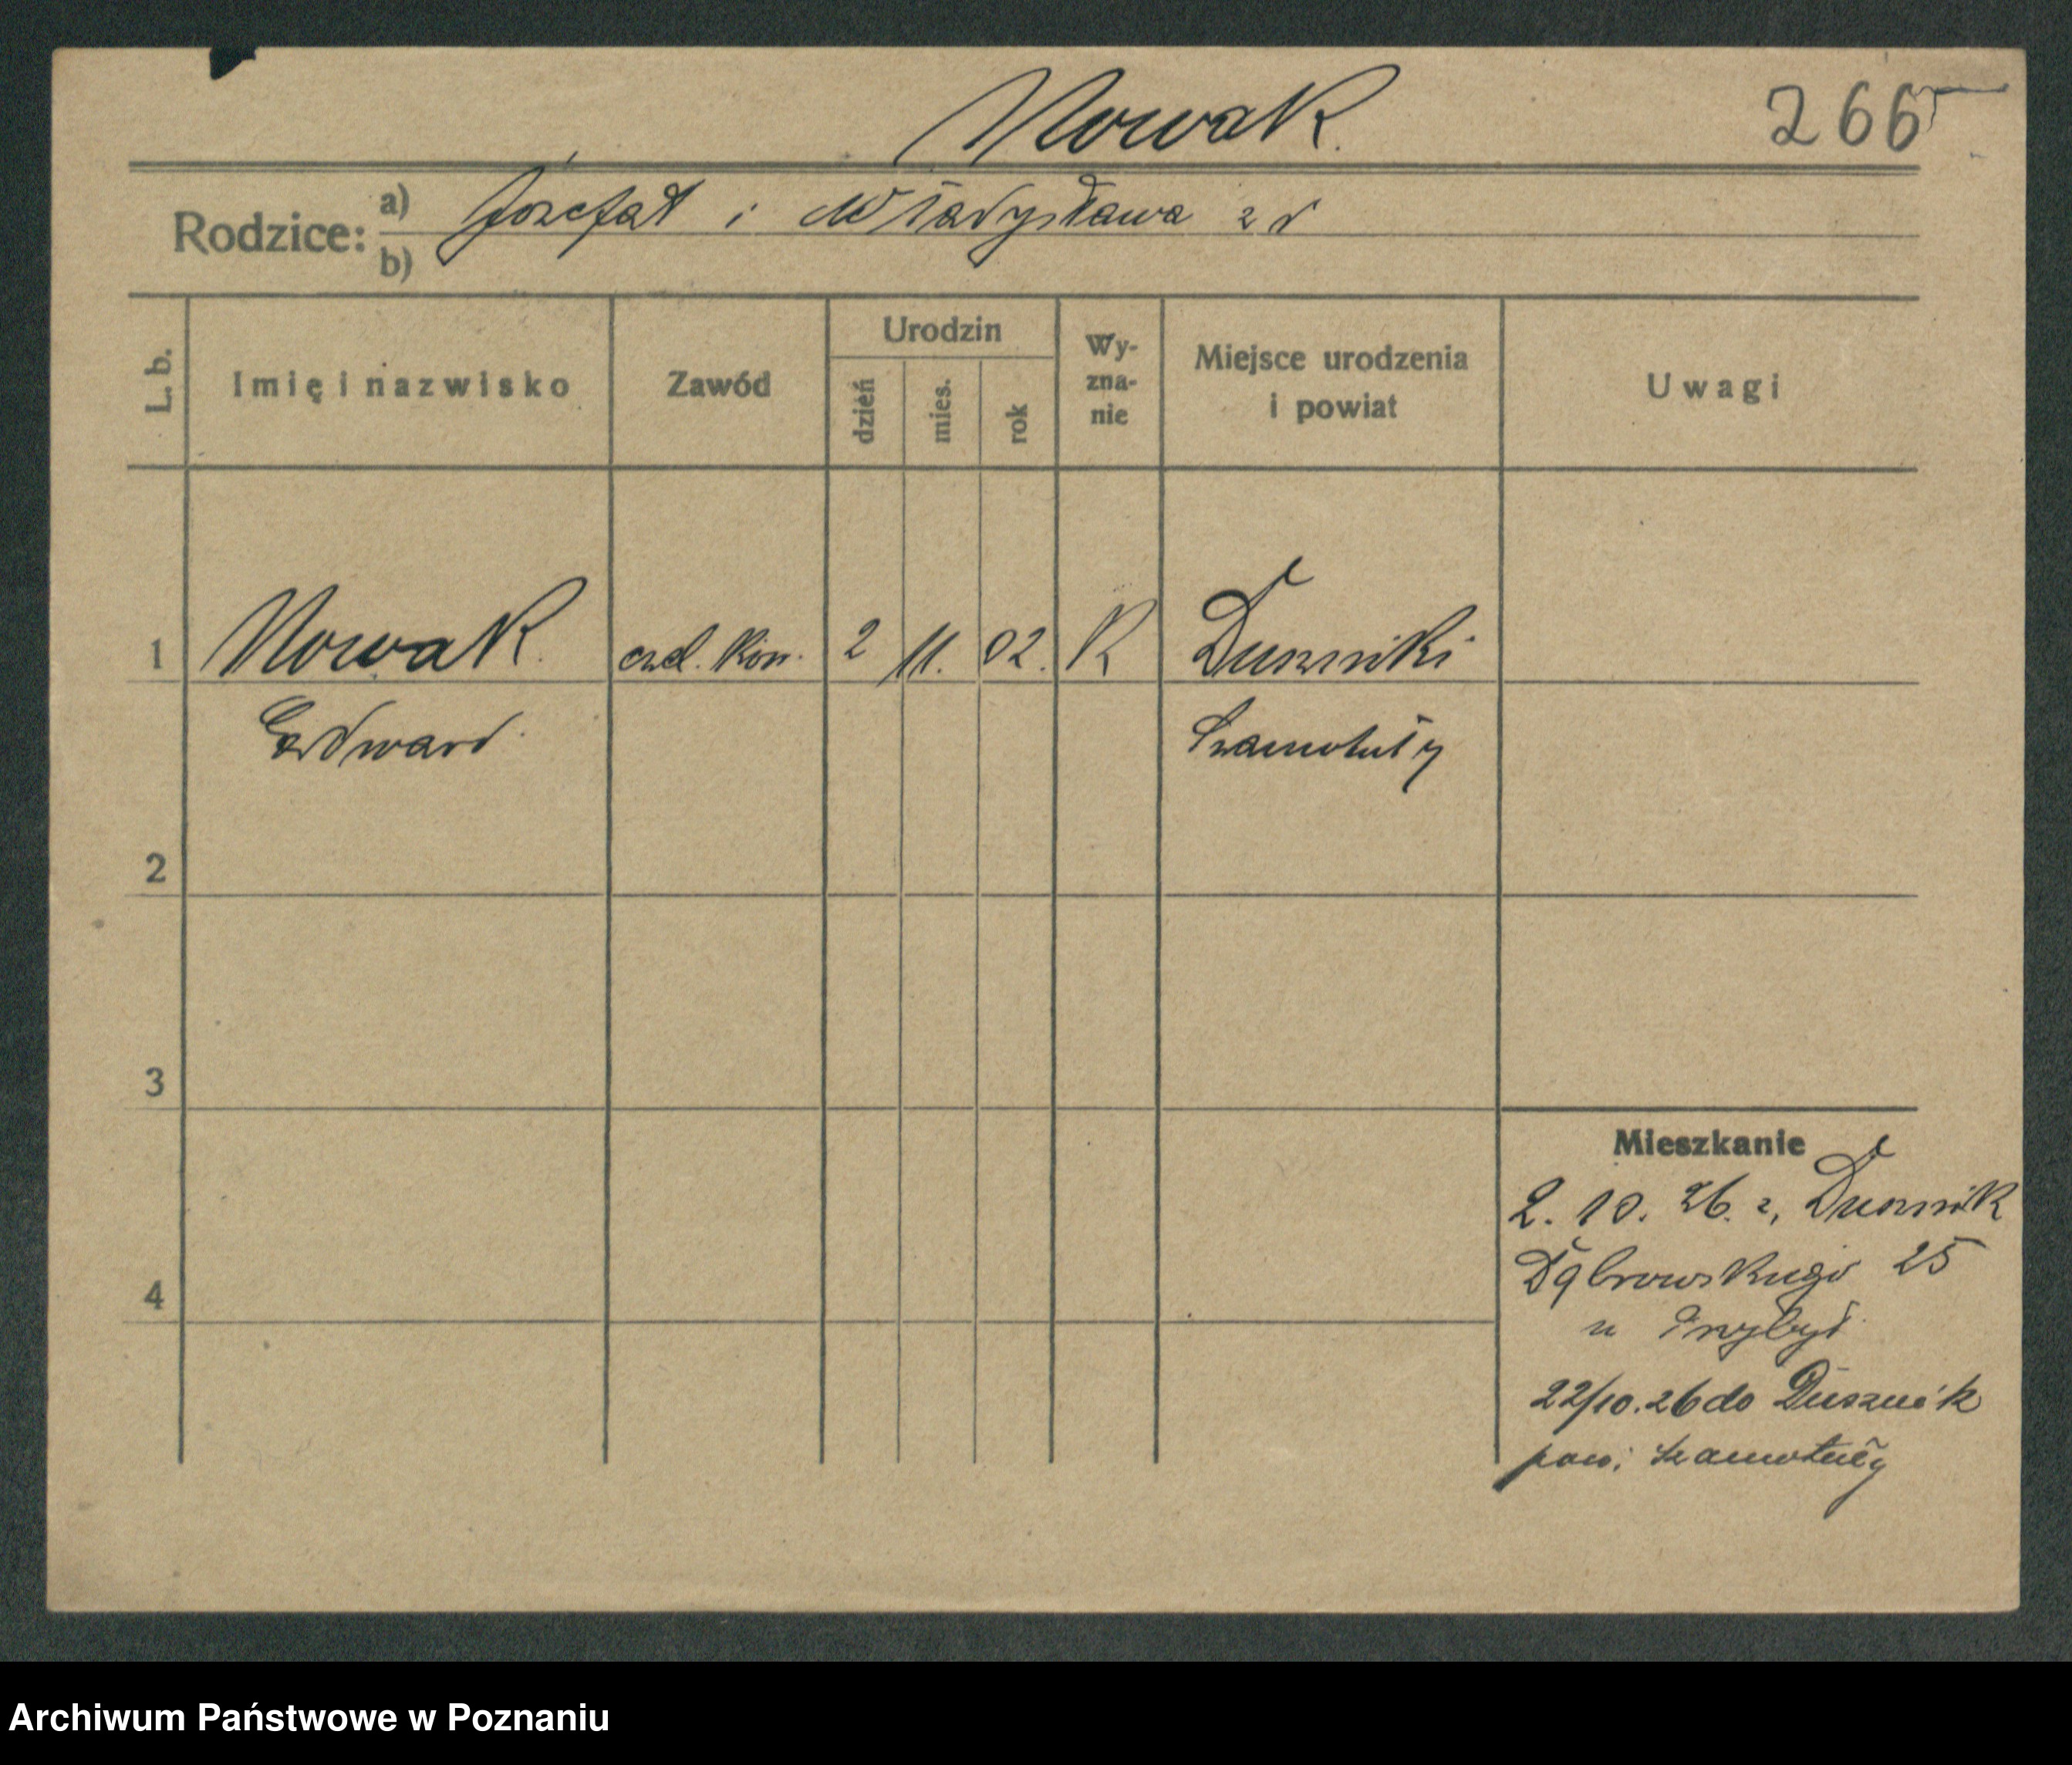 Nowak
265
Rodzice:
a) Jozefat i Władysława z d
b)
L. b.
Imię i nazwisko
Zawód
Urodzin
dzień
mies.
rok
Wy-
zna-
nie
Miejsce urodzenia
i powiat
Uwagi
1 Nowak czel. kom. 2 11. 02. K Duszniki
Edward Szamotuły
2
3
4
Mieszkanie
2. 10. 26. z, Dusznik
Dąbrowskiego 25
u
22/10.26 do Dusznik
pow: Szamotuły
Archiwum Państwowe w Poznaniu